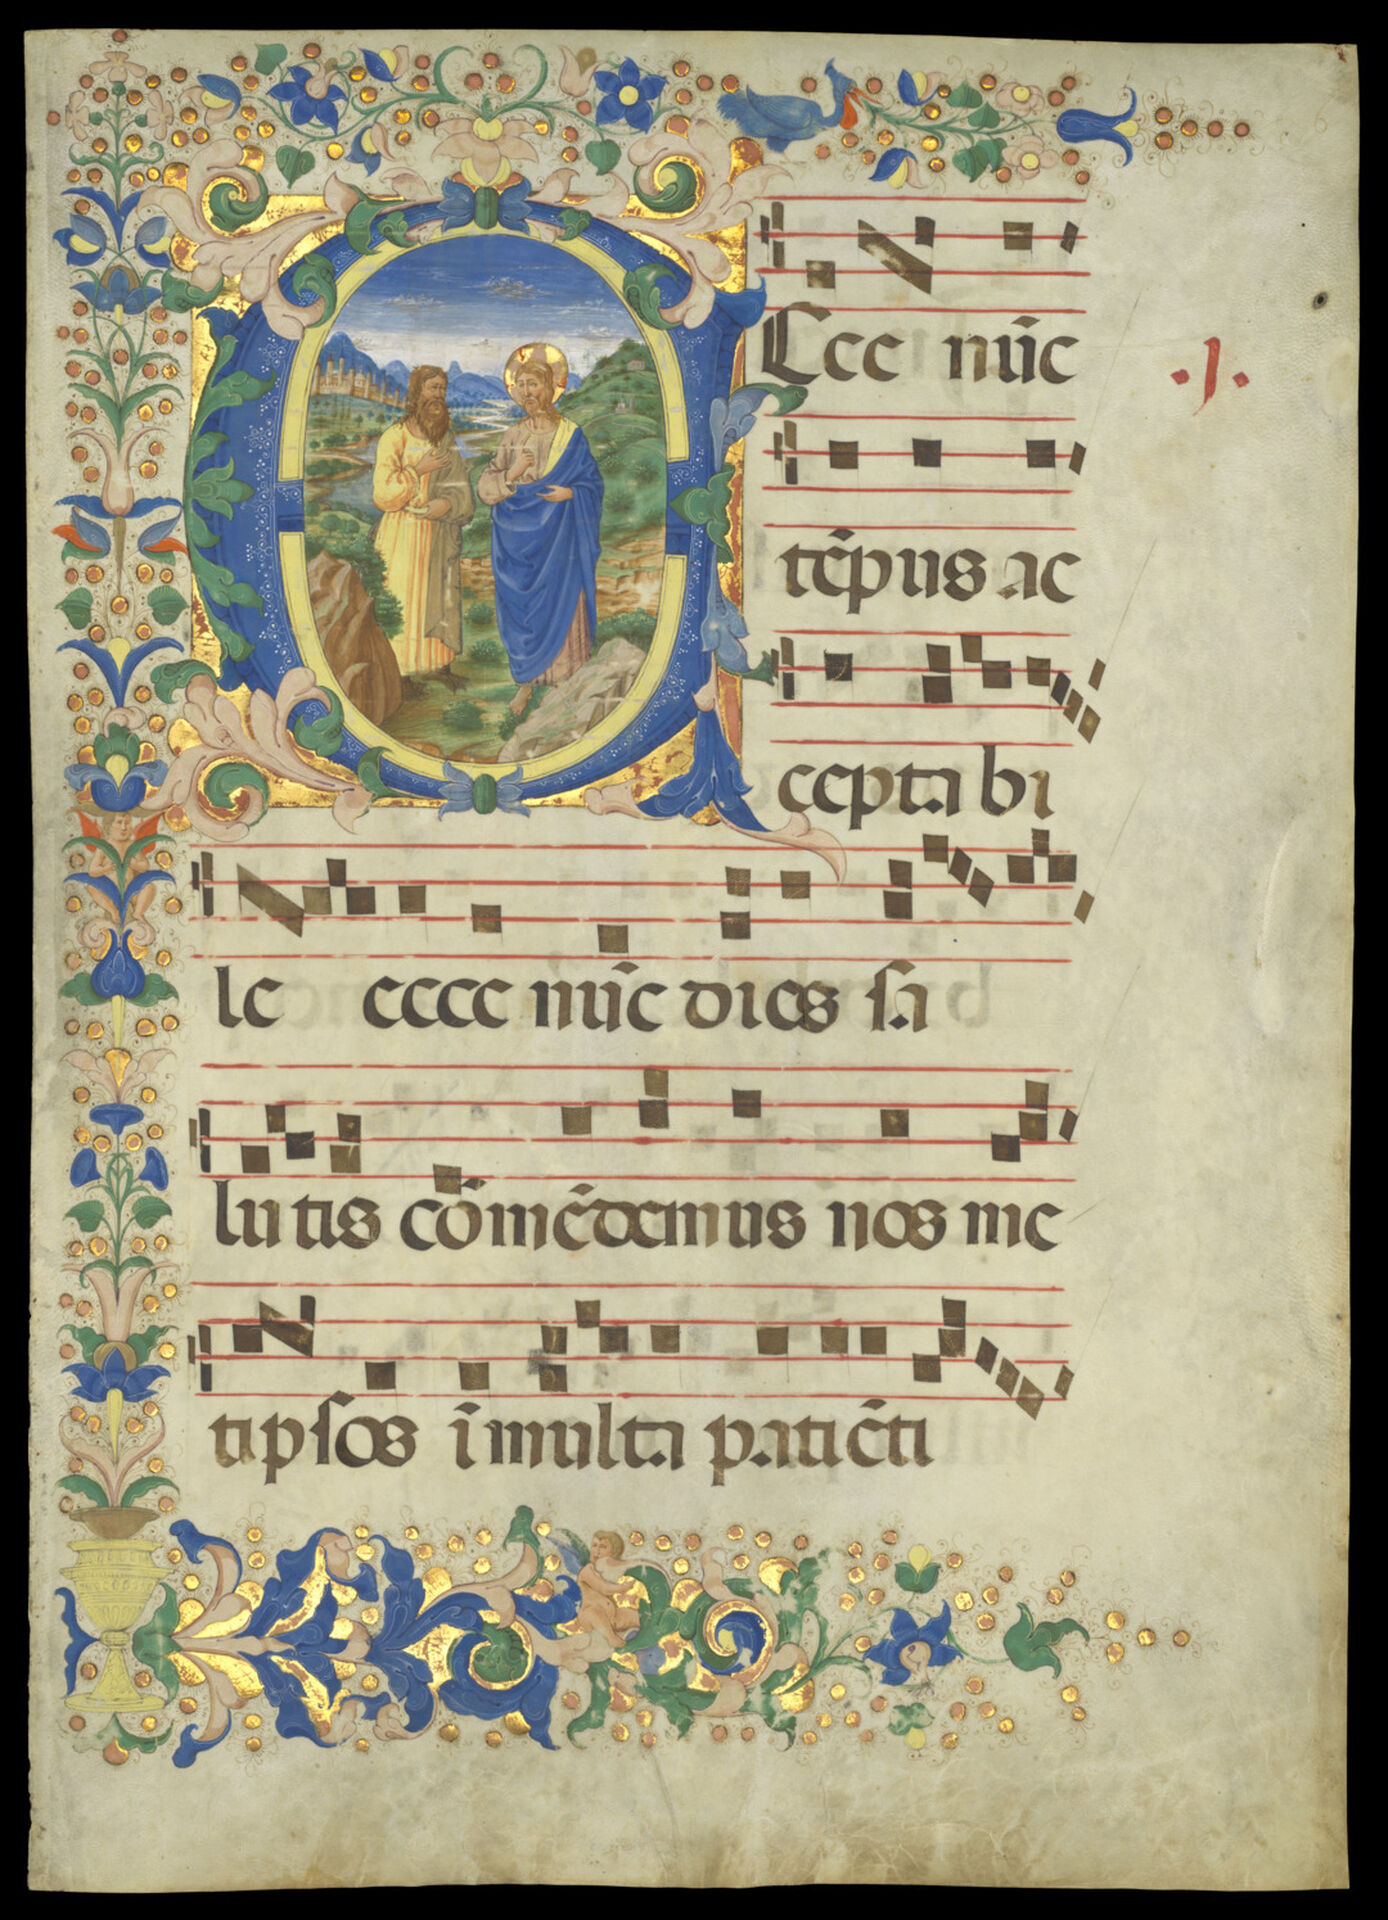 ECce nūc
.I.
tēpus ac
cepta bi
le ecce nūc dies ſa
lu tis cōmēdemus nos me
tipſos ī multa patiēti